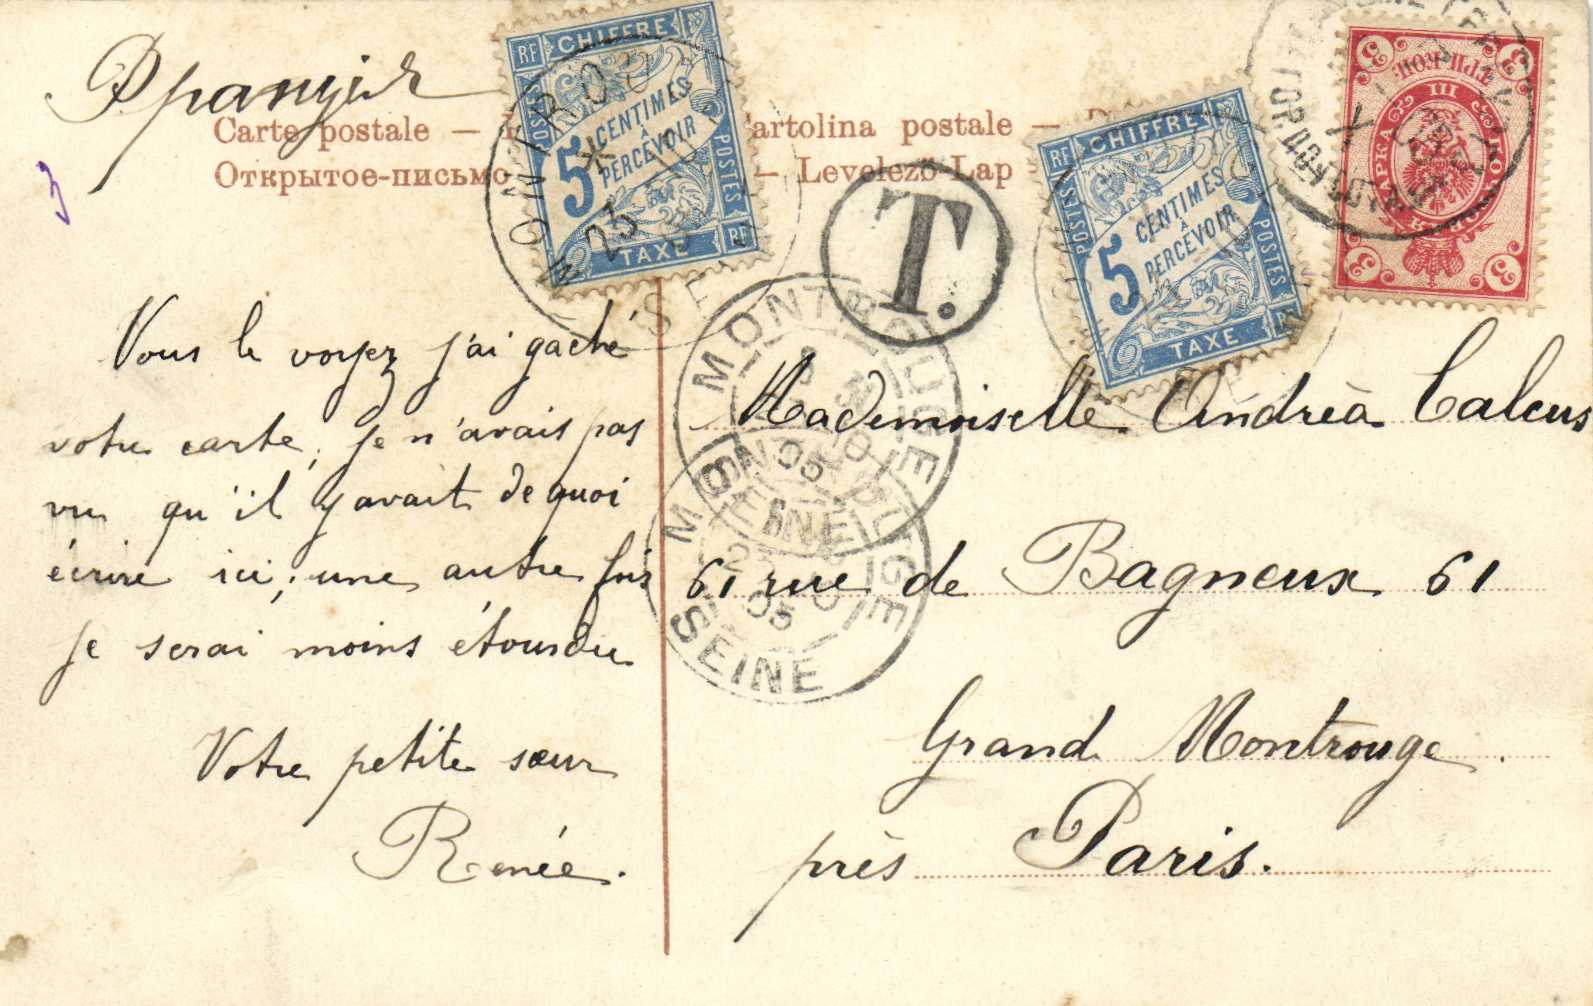 Франція
Carte postale —
artolina postale —
Открытое-письмо
— Levelezo-Lap
3
RF CHIFFRE
POSTES
5 CENTIMES
À
PERCEVOIR
POSTES
TAXE RF
T.
RF CHIFFRE
POSTES
5 CENTIMES
À
PERCEVOIR
POSTES
TAXE RF
3 3
ТРИ КОП.
III
МАРКА
3 3
MONTROUGE
05
SEINE
MONTROUGE
05
SEINE
Vous le voyez j'ai gaché
votre carte, je n'avais pas
vu qu'il y avait de quoi
écrire ici; une autre fois
je serai moins étourdie
Votre petite sœur
Renée.
Mademoiselle Andréa Calcus
61 rue de Bagneux 61
Grand Montrouge
près Paris.